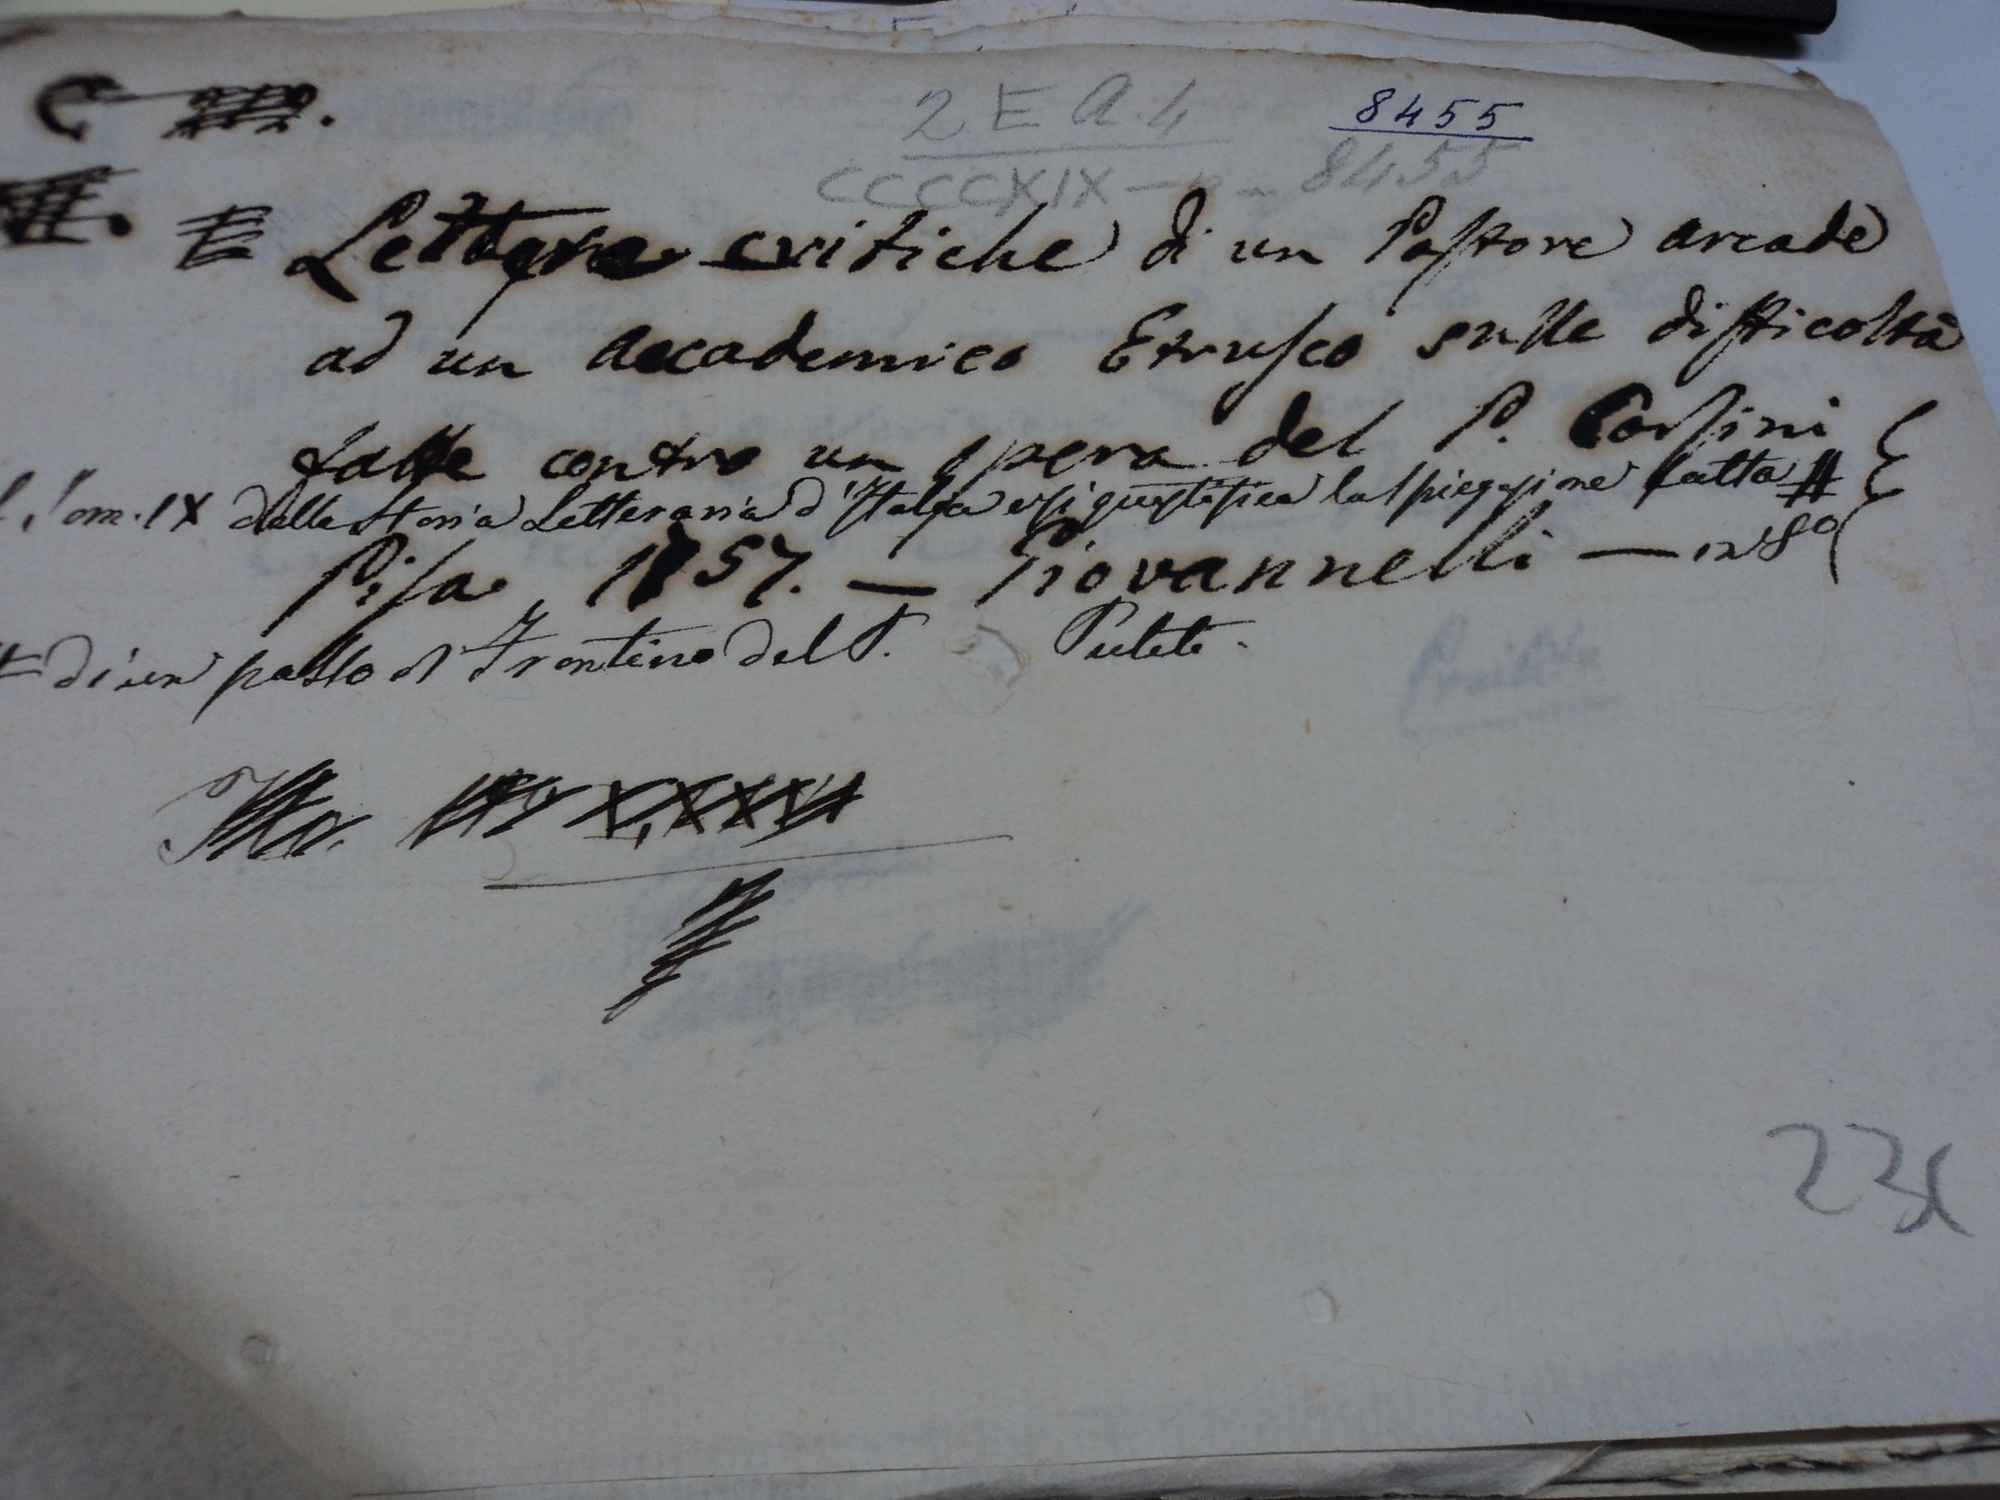 2 E A. 4
8455
CCCCCXIX — 8455
Lettere critiche di un Pastore arcade
ad un accademico Etrusco sulle difficoltà
fatte contro un opera del P. Corsini
Tom. IX della Storia Letteraria d'Italia e si giustifica la spiegazione fatta #
Pisa 1757. — Giovannelli — in 8º
# di un passo di Frontino del P. Puleti.
23